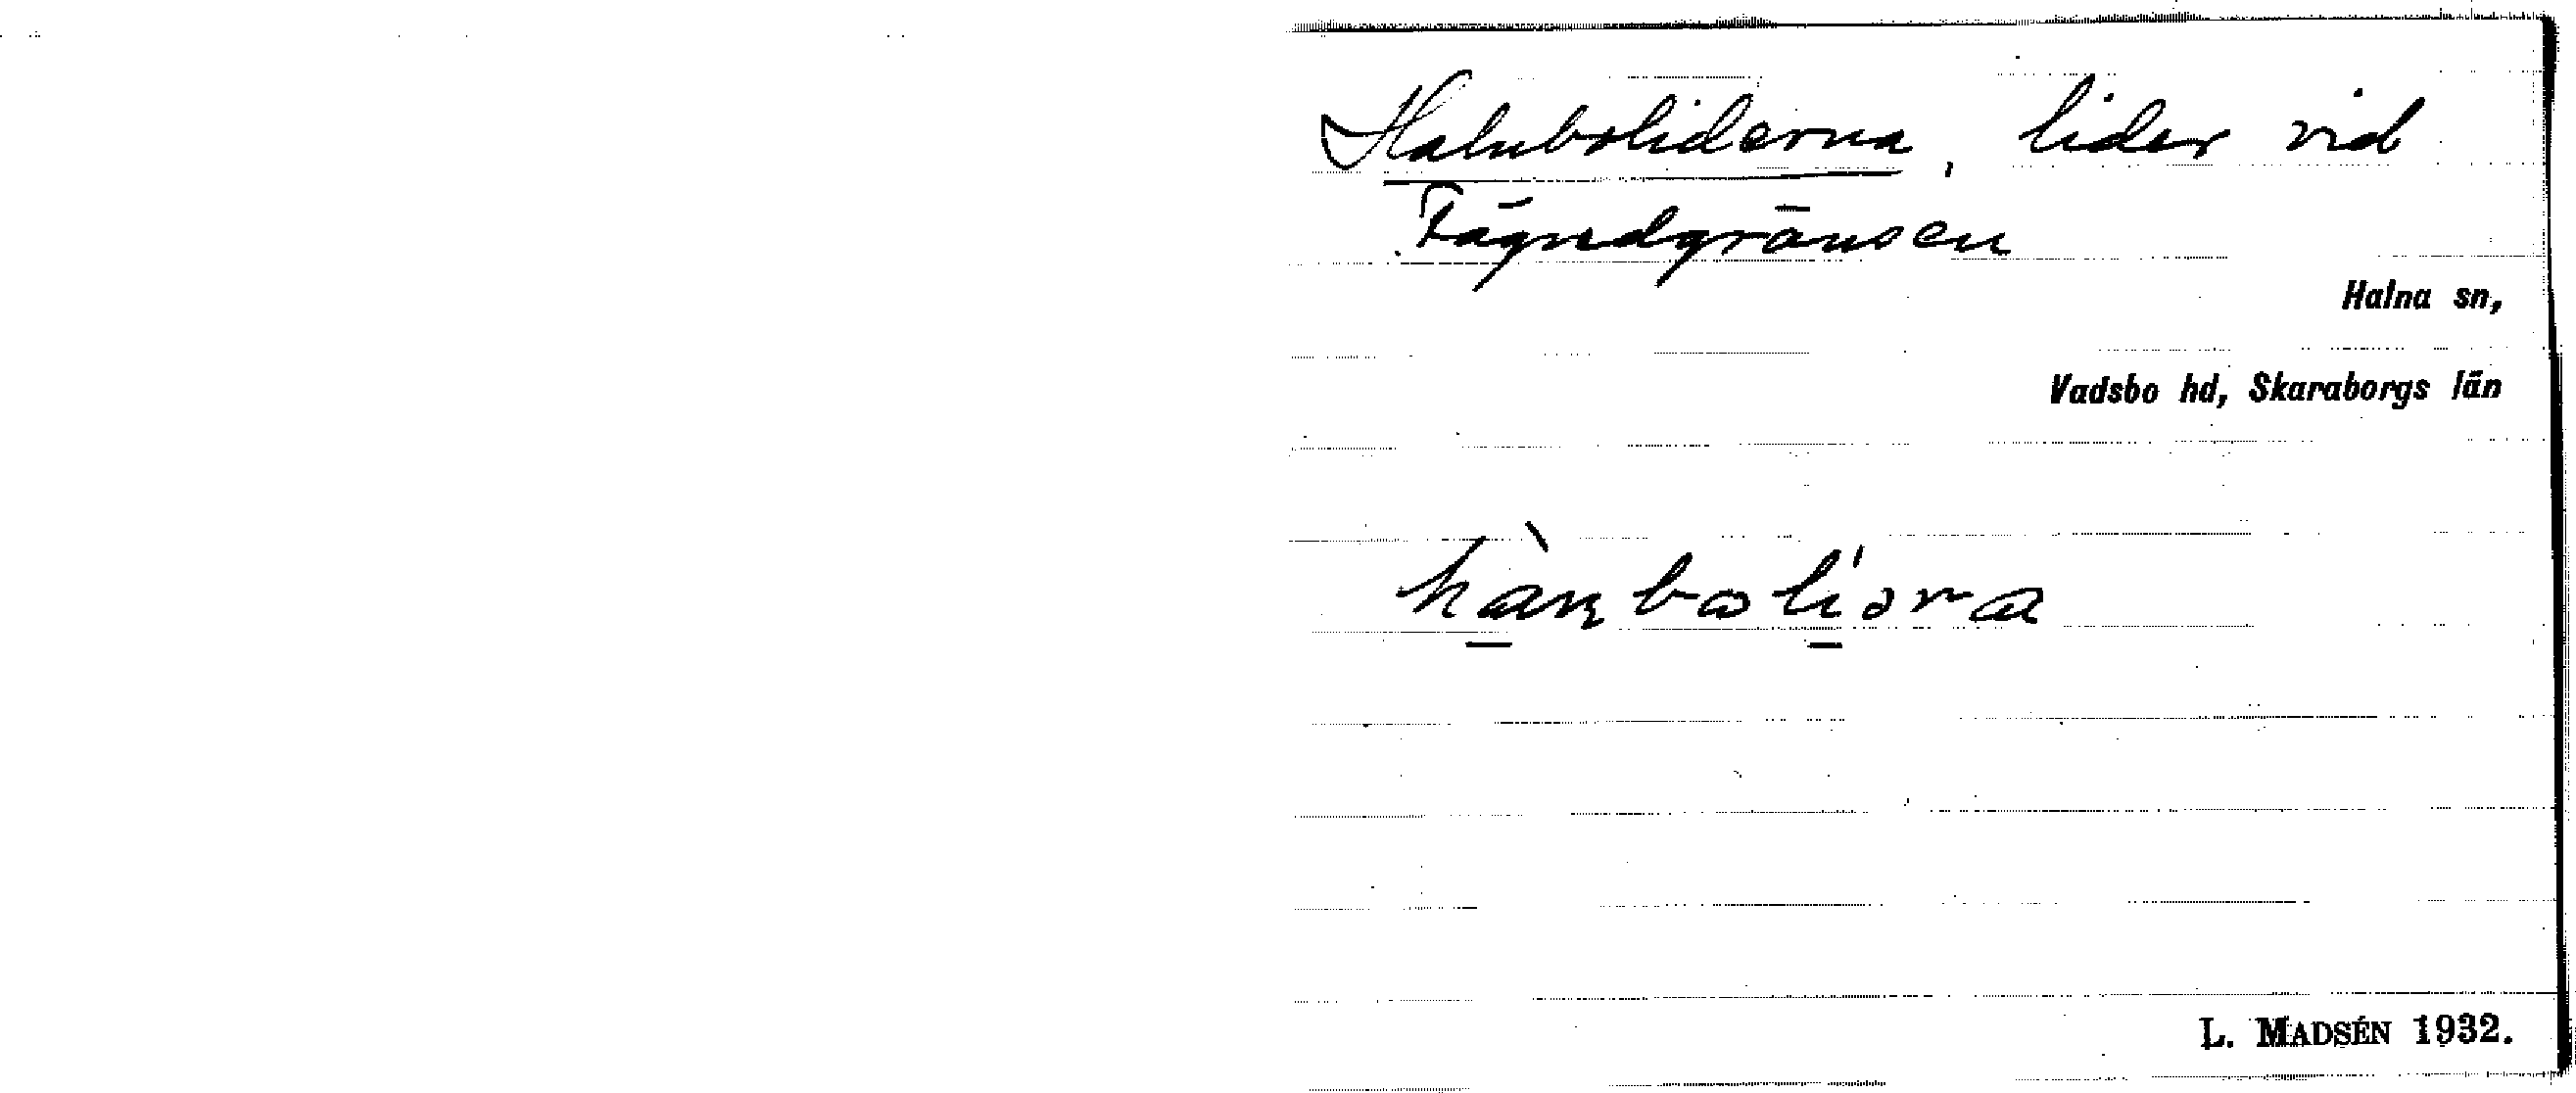 Halnboliderna, lider vid
Fägredgränsen
Halna sn,
Vadsbo hd, Skaraborgs län
L. MADSÉN 1932.